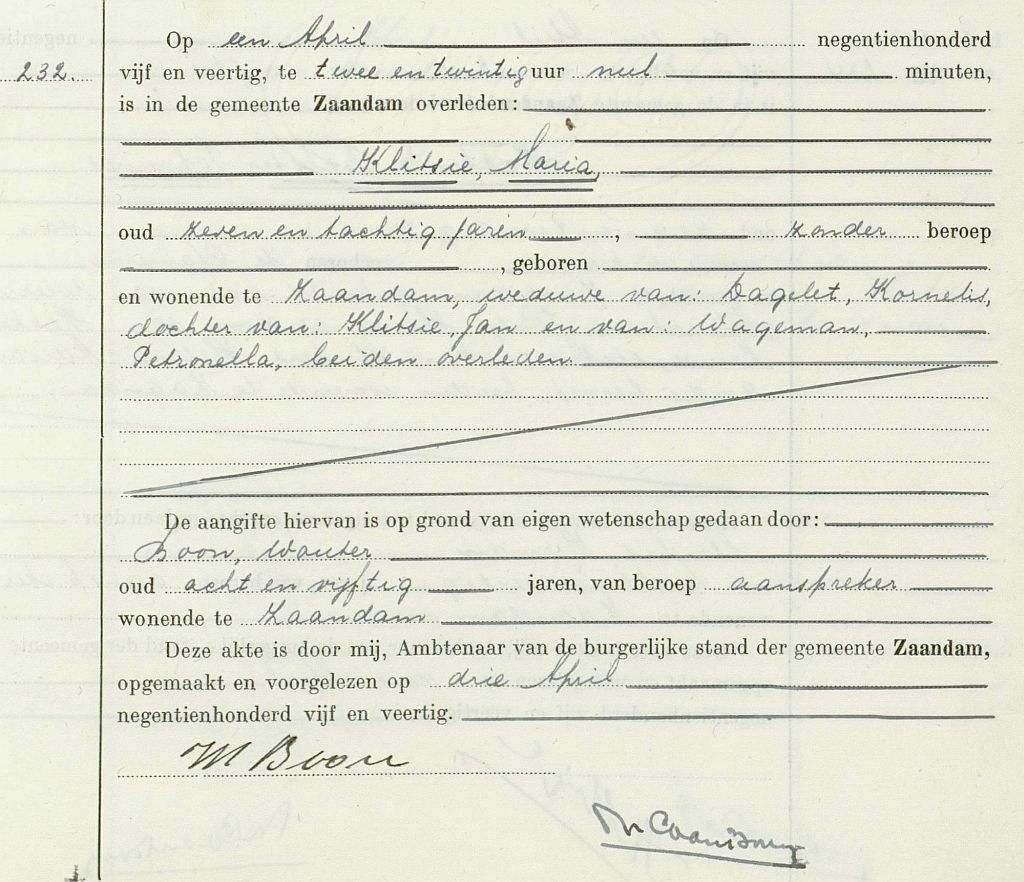 Op een April negentienhonderd
232. vijf en veertig, te twee en twintig uur nul minuten,
is in de gemeente Zaandam overleden:
Klitsie, Maria,
oud zeven en tachtig jaren, zonder beroep
, geboren
en wonende te Zaandam, weduwe van: Dagelet, Kornelis,
dochter van: Klitsie, Jan en van: Wageman,
Petronella, beiden overleden.
De aangifte hiervan is op grond van eigen wetenschap gedaan door:
Boon, Wouter
oud acht en vijftig jaren, van beroep aanspreker
wonende te Zaandam
Deze akte is door mij, Ambtenaar van de burgerlijke stand der gemeente Zaandam,
opgemaakt en voorgelezen op drie April
negentienhonderd vijf en veertig.
W Boon